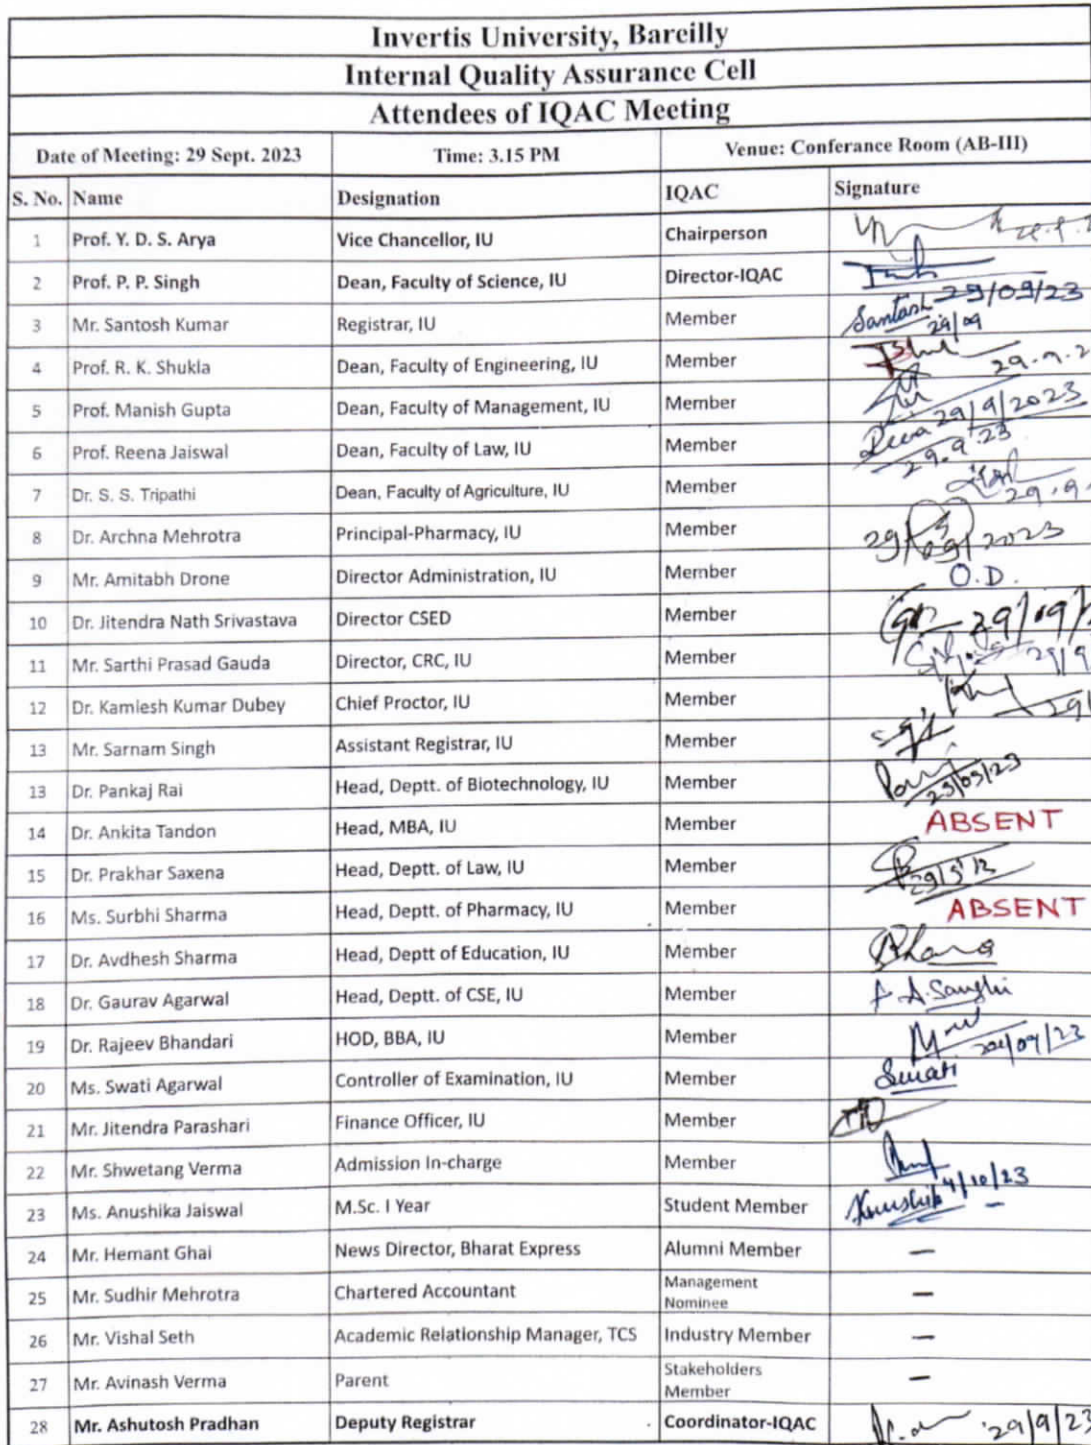 Invertis University, Bareilly
Internal Quality Assurance Cell
Attendees of IQAC Meeting
Date of Meeting: 29 Sept. 2023 Time: 3.15 PM Venue: Conferance Room (AB-III)
S. No. Name Designation IQAC Signature
1 Prof. Y. D. S. Arya Vice Chancellor, IU Chairperson
2 Prof. P. P. Singh Dean, Faculty of Science, IU Director-IQAC 29/09/23
3 Mr. Santosh Kumar Registrar, IU Member Santosh 29/09
4 Prof. R. K. Shukla Dean, Faculty of Engineering, IU Member
5 Prof. Manish Gupta Dean, Faculty of Management, IU Member 29/9/2023
6 Prof. Reena Jaiswal Dean, Faculty of Law, IU Member 29.9.23
7 Dr. S. S. Tripathi Dean, Faculty of Agriculture, IU Member
8 Dr. Archna Mehrotra Principal-Pharmacy, IU Member 29/09/2023
9 Mr. Amitabh Drone Director Administration, IU Member O.D.
10 Dr. Jitendra Nath Srivastava Director CSED Member
11 Mr. Sarthi Prasad Gauda Director, CRC, IU Member
12 Dr. Kamlesh Kumar Dubey Chief Proctor, IU Member
13 Mr. Sarnam Singh Assistant Registrar, IU Member
13 Dr. Pankaj Rai Head, Deptt. of Biotechnology, IU Member 29/09/23
14 Dr. Ankita Tandon Head, MBA, IU Member ABSENT
15 Dr. Prakhar Saxena Head, Deptt. of Law, IU Member
16 Ms. Surbhi Sharma Head, Deptt. of Pharmacy, IU Member ABSENT
17 Dr. Avdhesh Sharma Head, Deptt of Education, IU Member
18 Dr. Gaurav Agarwal Head, Deptt. of CSE, IU Member
19 Dr. Rajeev Bhandari HOD, BBA, IU Member
20 Ms. Swati Agarwal Controller of Examination, IU Member Swati
21 Mr. Jitendra Parashari Finance Officer, IU Member
22 Mr. Shwetang Verma Admission In-charge Member
23 Ms. Anushika Jaiswal M.Sc. I Year Student Member 4/10/23
24 Mr. Hemant Ghai News Director, Bharat Express Alumni Member –
25 Mr. Sudhir Mehrotra Chartered Accountant Management Nominee –
26 Mr. Vishal Seth Academic Relationship Manager, TCS Industry Member –
27 Mr. Avinash Verma Parent Stakeholders Member –
28 Mr. Ashutosh Pradhan Deputy Registrar Coordinator-IQAC 29/9/23